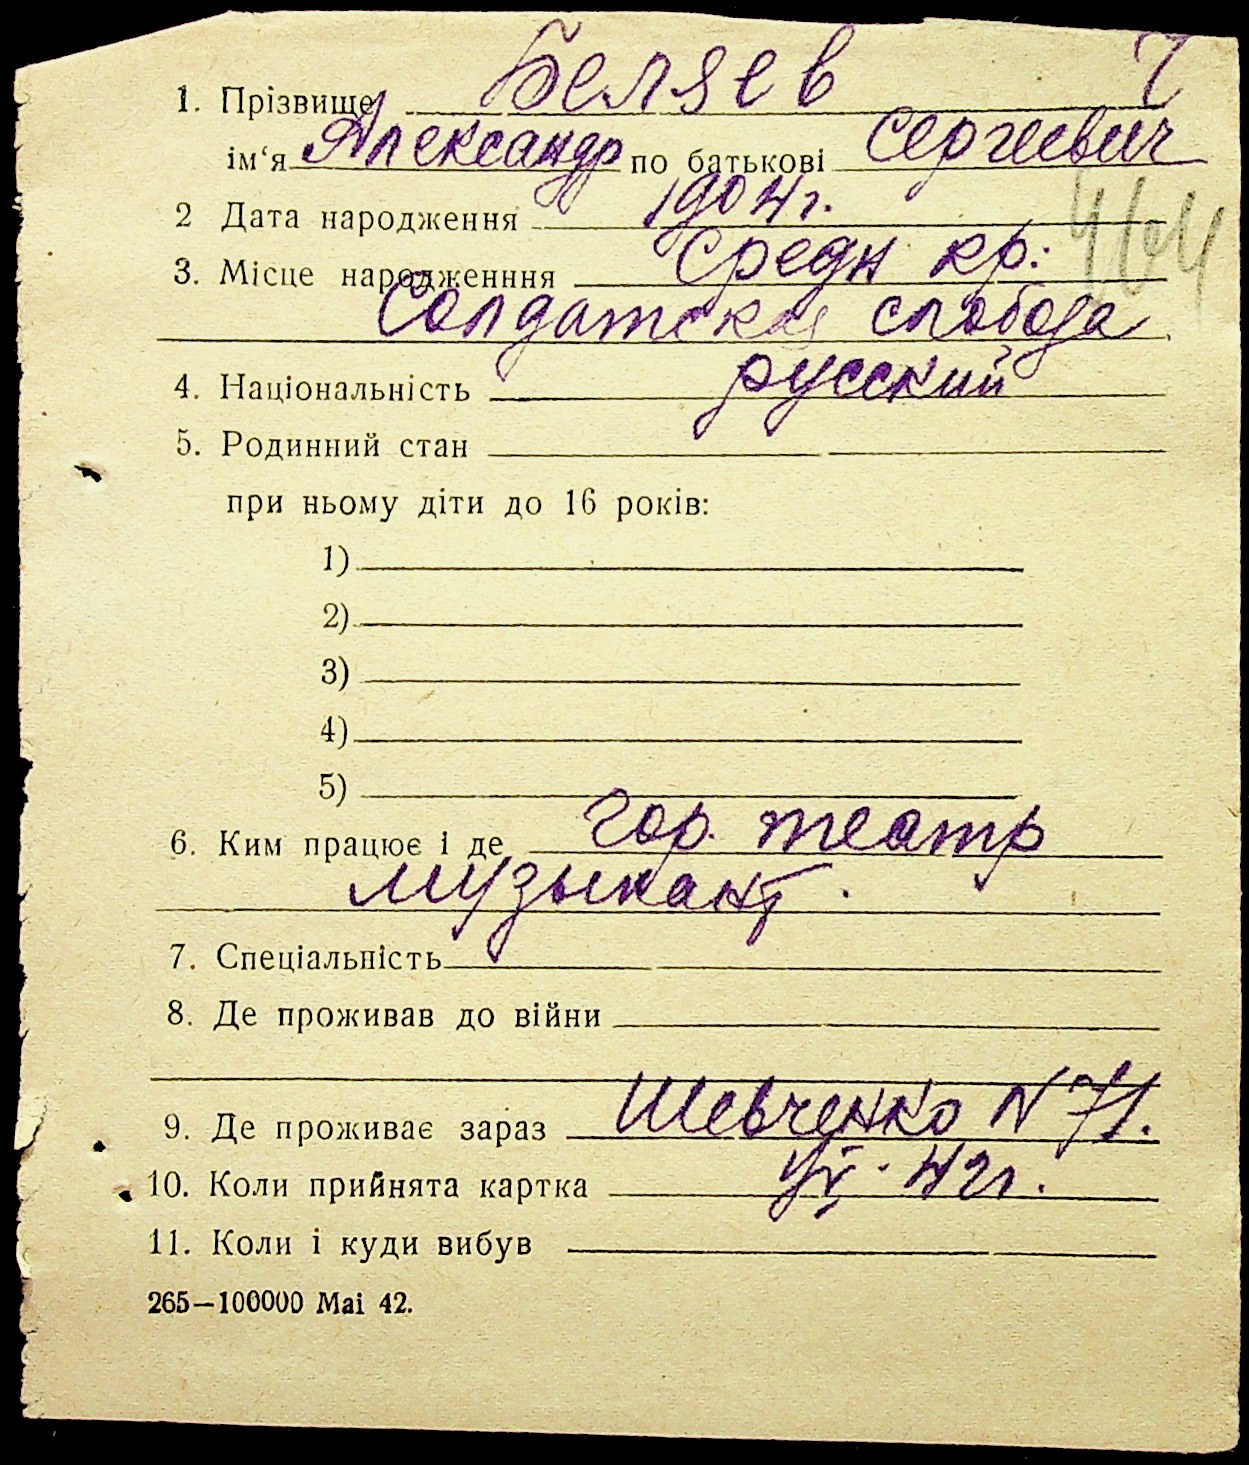 1. Прізвище Беляев
ім‘я Александр по батькові Сергеевич
2 Дата народження 1904 г.
3. Місце народженння Средн кр:
Солдатская слобода
4. Національність русский
5. Родинний стан
при ньому діти до 16 років:
1)
2)
3)
4)
5)
6. Ким працює і де гор. театр
музыкант.
7. Спеціальність
8. Де проживав до війни
9. Де проживає зараз Шевченко N 71.
10. Коли прийнята картка 42 г.
11. Коли і куди вибув
265—100000 Mai 42.